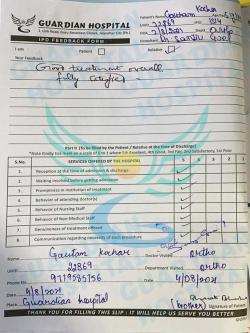 GUARDIAN HOSPITAL
IPD FEEDBACK FORM
Patient's Name Gautam Kahar
22869
I am
Patient
Relative
Your Feedback
Good treatment overall
fully satisfied
Part II (To be filled by the Patient / Relative at the time of Discharge)
S.No. SERVICES OFFERED BY THE HOSPITAL 5 4 3 2 1
1. Reception at the time of admission & discharge
2. Waiting involved before getting admission
3. Promptness in institution of treatment
4. Behavior of attending doctor(s)
5. Behavior of Nursing Staff
6. Behavior of Non Medical Staff
7. Genuineness of treatment offered
8. Communication regarding necessity of each procedure
Name Gautam Kahar
Doctor Ortho
22869
Department Visited Ortho
Phone 9719585756
Date 4/08/2021
4/8/2021
Guardian hospital
(brother) Signature of Patient
THANK YOU FOR FILLING THIS SLIP : IT WILL HELP US SERVE YOU BETTER